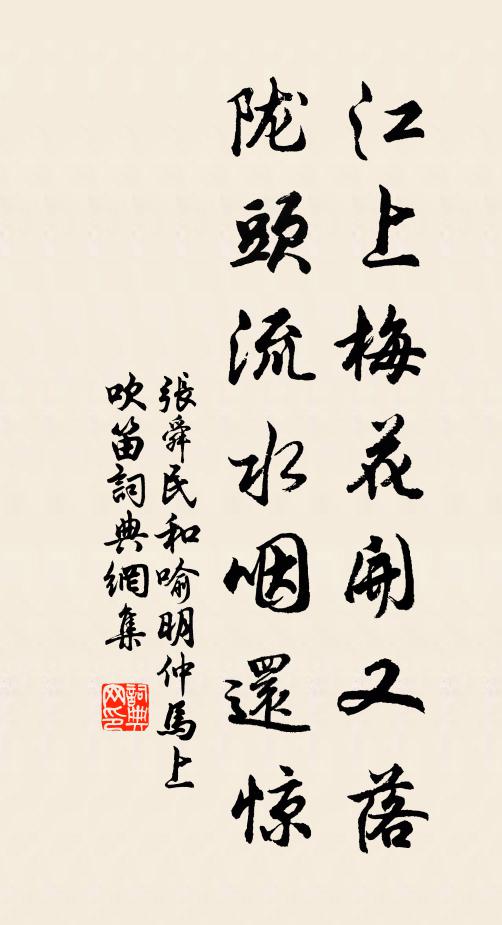 江上梅花開又落
陇頭流水咽還惊
張舜民和喻明仲馬上
吹笛詞典網集
詞典
网印